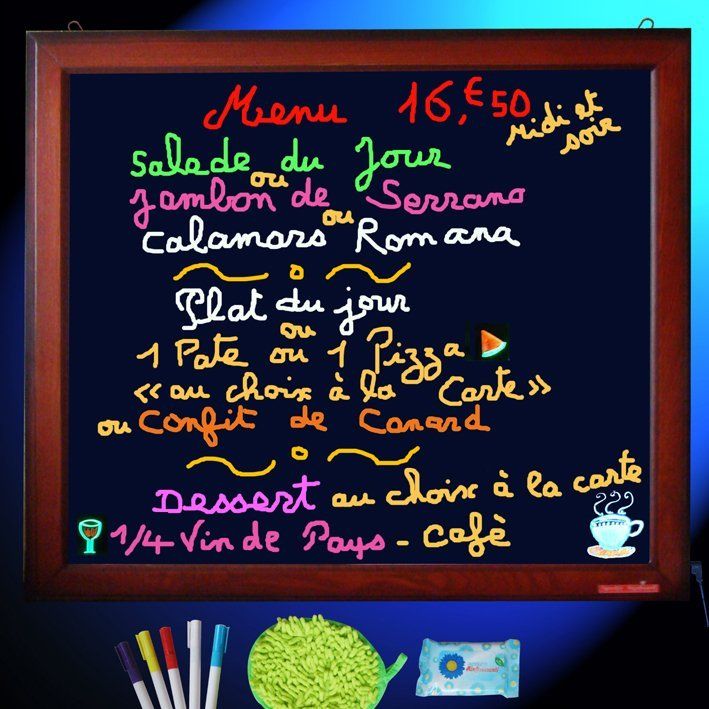 Menu 16,€50
midi et
soie
Salade du Jour
ou
Jambon de Serrano
ou
Calamars Romana
Plat du jour
ou
1 Pate ou 1 Pizza
«au choix à la Carte»
ou Confit de Canard
Dessert au choix à la carte
1/4 Vin de Pays - Cafè